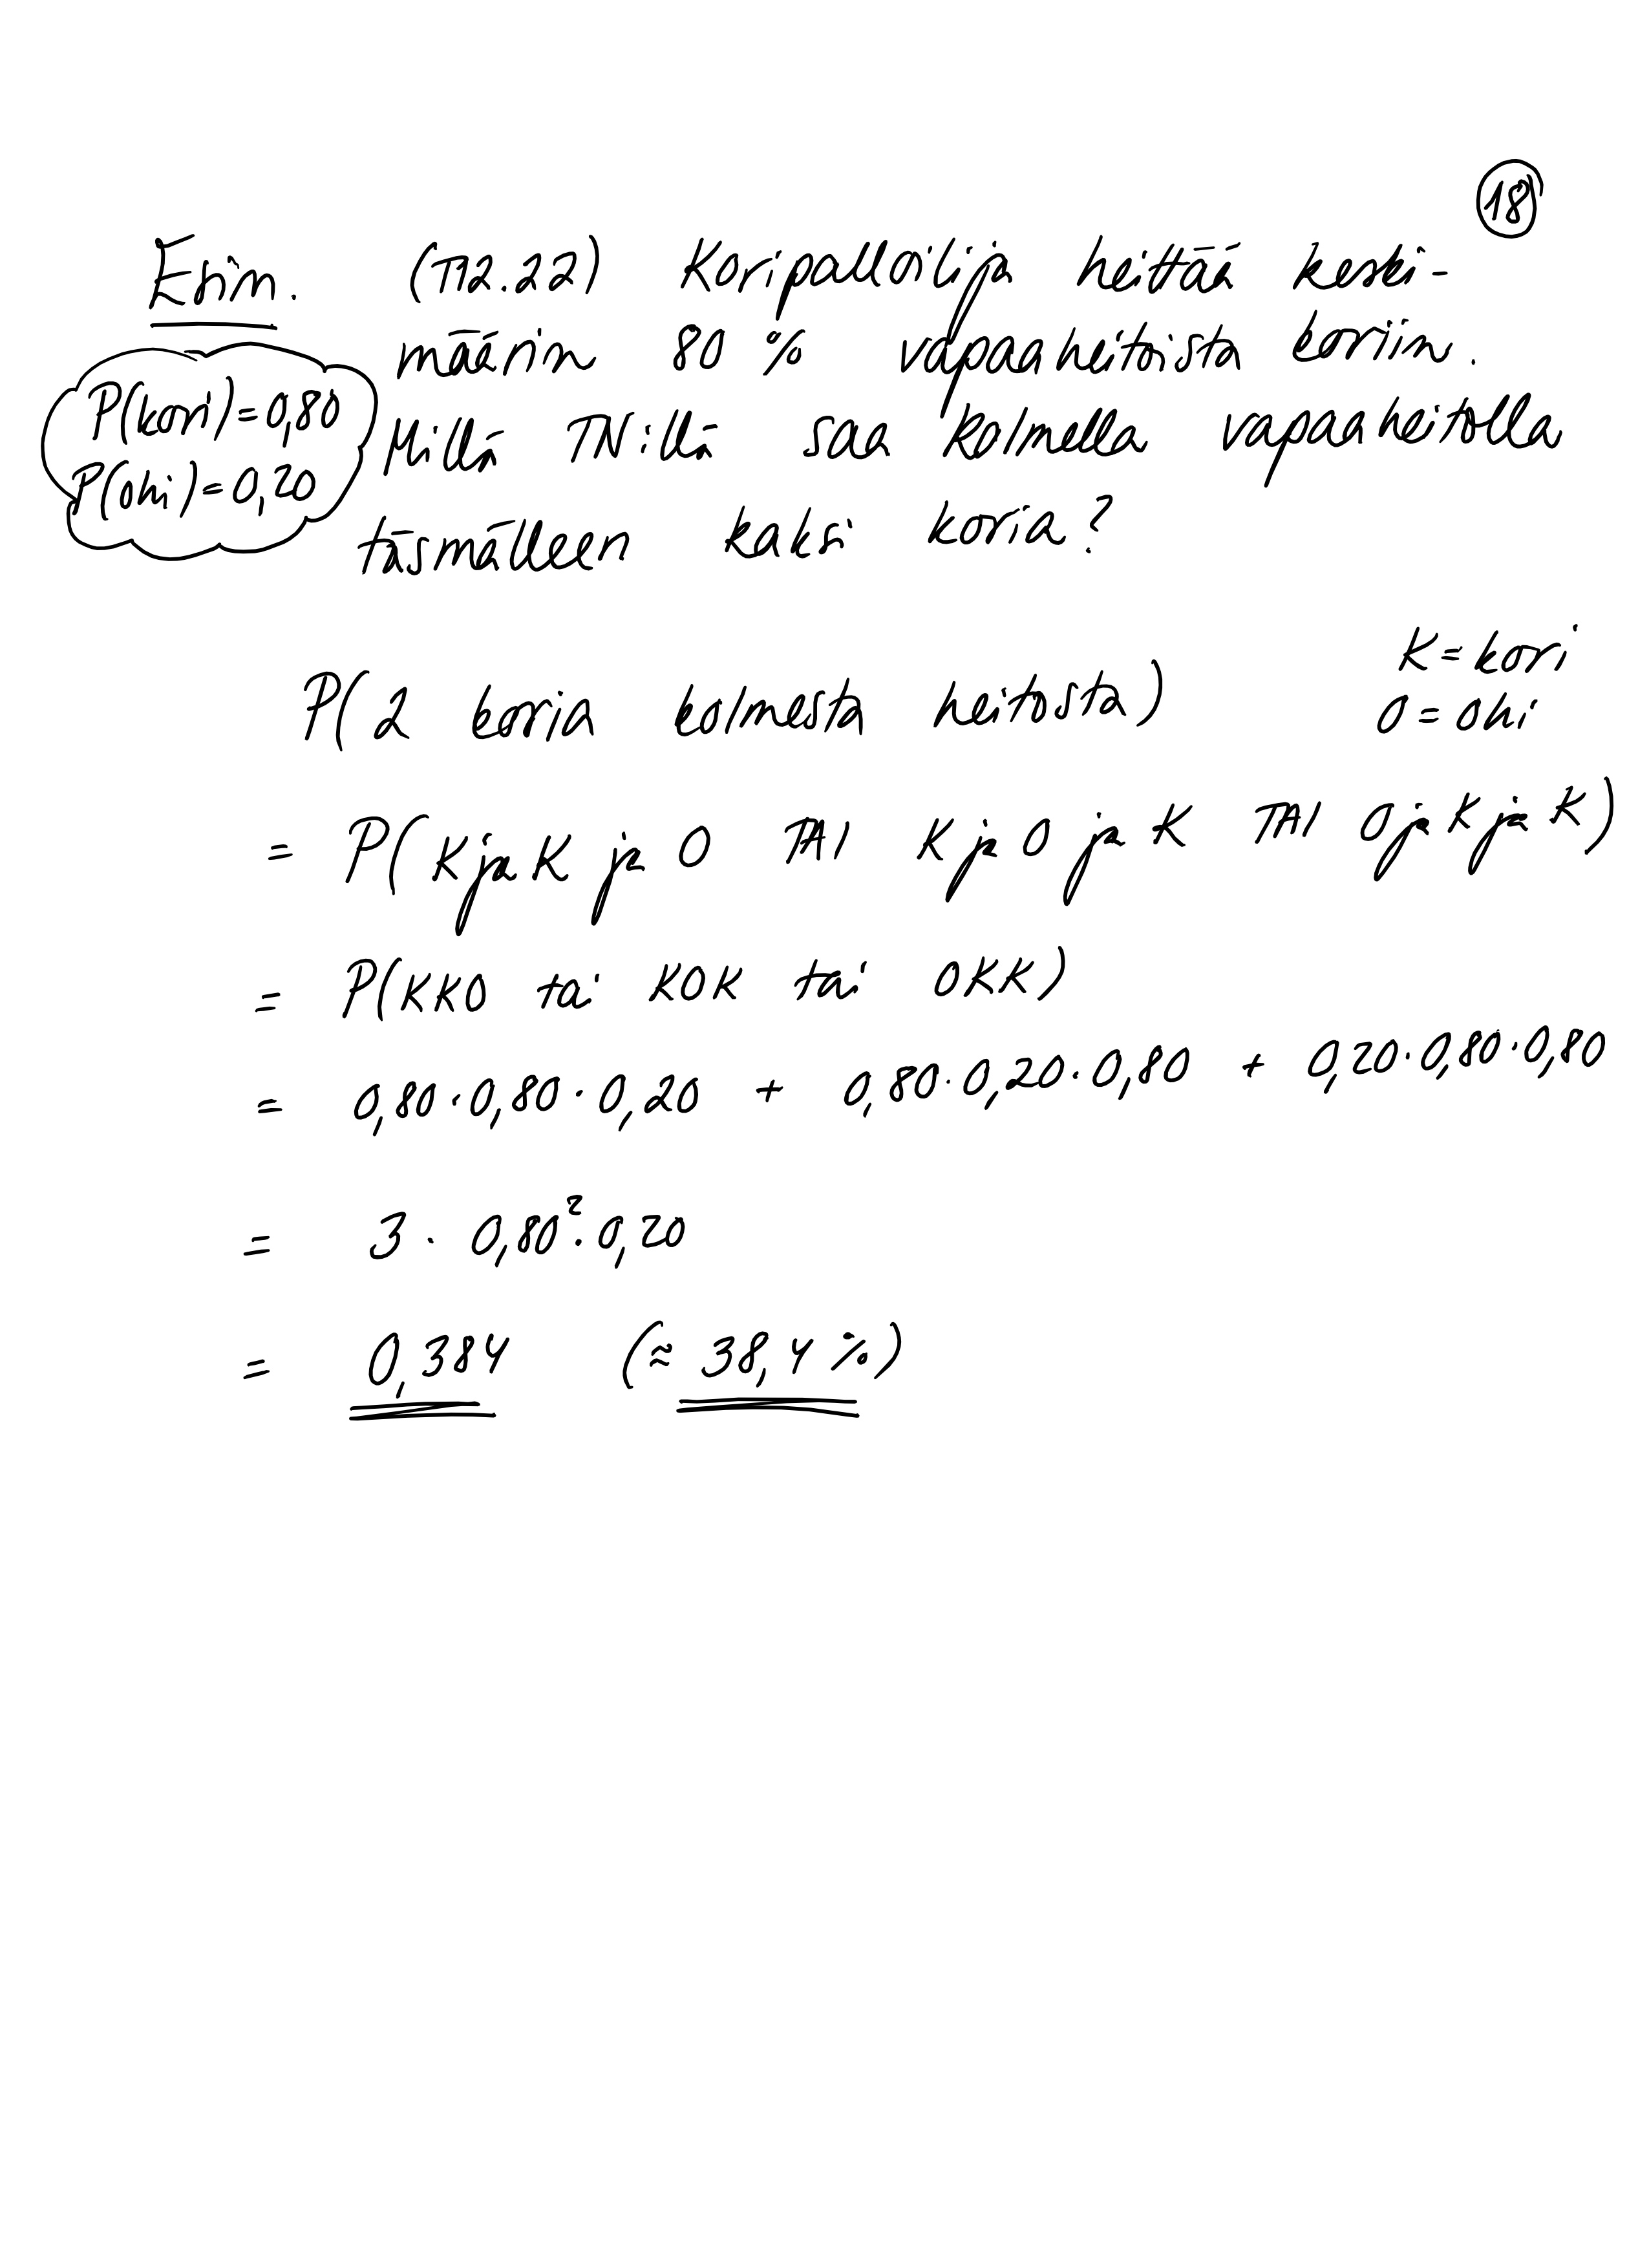 18
Esim. (T12.22) Koripalloilija heittää keski-
määrin 80 % vapaaheitoista koriin.
P(kori) = 0,80
P(ohi) = 0,20
Millä TN:llä saa kolmella vapaaheitolla
täsmälleen kaksi koria?
K = kori
O = ohi
P(2 koria kolmesta heitosta)
= P(K ja K ja O TAI K ja O ja K TAI O ja K ja K)
= P(KKO tai KOK tai OKK)
= 0,80·0,80·0,20 + 0,80·0,20·0,80 + 0,20·0,80·0,80
= 3 · 0,80²·0,20
= 0,384 (≈ 38,4 %)